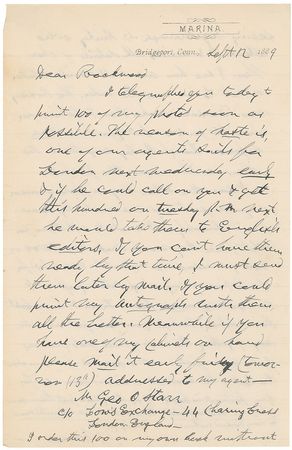 MARINA
Bridgeport, Conn., Sept 12 1889
Dear Rockwood
I telegraphed you today to
print 100 of my photos soon as
possible. The reason of haste is,
one of our agents sails for
London next Wednesday early
& if he could call on you & get
this hundred on tuesday P.M. next
he would take them to English
editors. If you can't have them
ready by that time, I must send
them later by mail. If you could
print my autograph under them
all the better. Meanwhile if you
have one of my cabinets on hand
please mail it early friday (tomor-
row 13th) addressed to my agent—
Mr Geo O Starr
c/o Low's Exchange - 44 Charing Cross
London England
I order this 100 on my own hook without